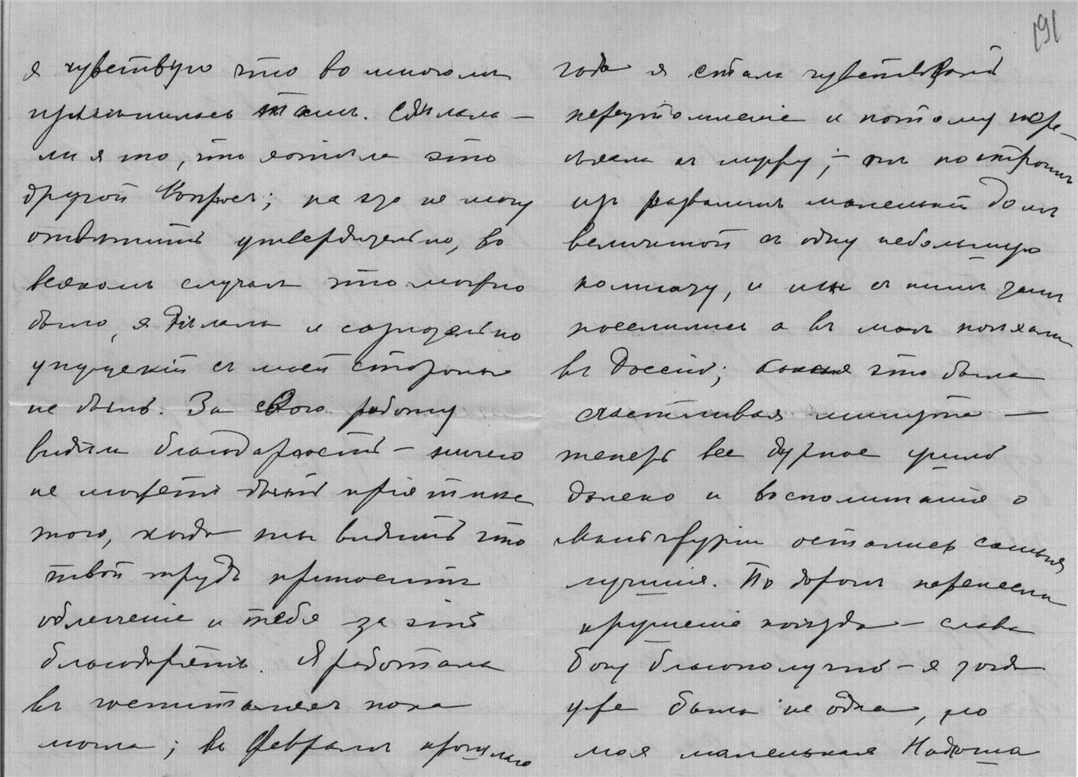 191
я чувствую что во многом
измѣнилась там. Сдѣлала-
ли я то, что хотѣла это
другой вопросъ; на это не могу
отвѣтить утвердительно, во
всякомъ случаѣ что можно
было, я дѣлала и
упущеній съ моей стороны
не было. За свою работу
видѣли благодарность — ничего
не можетъ быть пріятнѣе
того, когда ты видишь что
твой трудъ приноситъ
облегченіе и тебя за это
благодарятъ. Я работала
въ госпиталяхъ пока
могла; въ Февралѣ прошлаго
года я стала чувствовать
переутомленіе и потому пере-
ѣхала къ мужу; — онъ построилъ
изъ развалинъ маленькій домъ
величиной въ одну небольшую
комнату, и мы съ нимъ тамъ
поселились а въ маѣ поѣхали
въ Россію; какая это была
счастливая минута —
теперь все дурное ушло
далеко и воспоминанія о
Маньчжуріи остались самыя
лучшія. По дорогѣ перенесли
крушеніе поѣзда — слава
Богу благополучно — я тогда
уже была не одна, но
моя маленькая Надюша